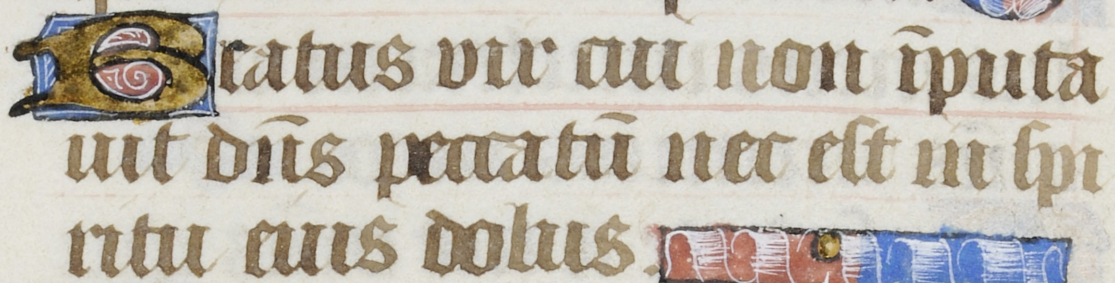 Beatus vir cui non īputa
uit dn̄s peccatū nec est in spi
ritu eius dolus.